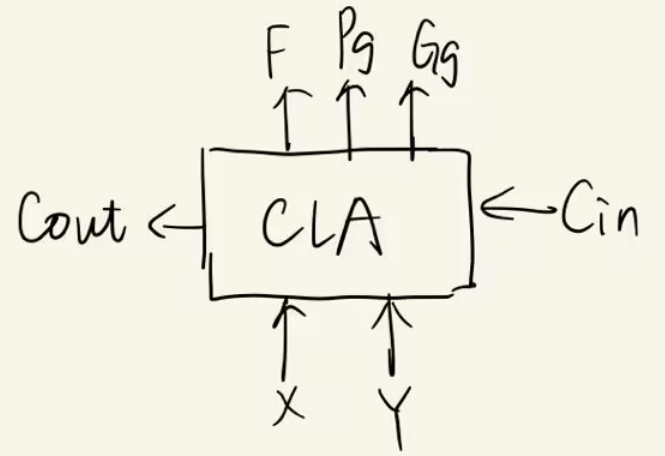 F Pg Gg
Cout CLA Cin
X Y